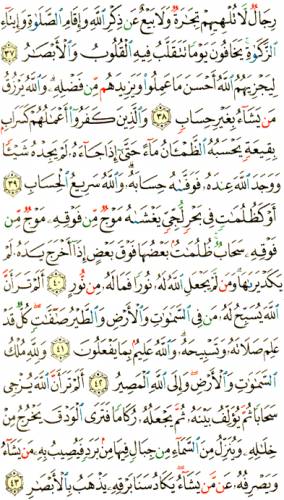 رِجَالٌ لَّا تُلْهِيهِمْ تِجَٰرَةٌ وَلَا بَيْعٌ عَن ذِكْرِ ٱللَّهِ وَإِقَامِ ٱلصَّلَوٰةِ وَإِيتَآءِ
ٱلزَّكَوٰةِ يَخَافُونَ يَوْمًا تَتَقَلَّبُ فِيهِ ٱلْقُلُوبُ وَٱلْأَبْصَٰرُ ٣٧
لِيَجْزِيَهُمُ ٱللَّهُ أَحْسَنَ مَا عَمِلُوا۟ وَيَزِيدَهُم مِّن فَضْلِهِۦ وَٱللَّهُ يَرْزُقُ
مَن يَشَآءُ بِغَيْرِ حِسَابٍ ٣٨ وَٱلَّذِينَ كَفَرُوٓا۟ أَعْمَٰلُهُمْ كَسَرَابٍ
بِقِيعَةٍ يَحْسَبُهُ ٱلظَّمْـَٔانُ مَآءً حَتَّىٰٓ إِذَا جَآءَهُۥ لَمْ يَجِدْهُ شَيْـًٔا
وَوَجَدَ ٱللَّهَ عِندَهُۥ فَوَفَّىٰهُ حِسَابَهُۥ وَٱللَّهُ سَرِيعُ ٱلْحِسَابِ ٣٩
أَوْ كَظُلُمَٰتٍ فِى بَحْرٍ لُّجِّىٍّ يَغْشَىٰهُ مَوْجٌ مِّن فَوْقِهِۦ مَوْجٌ مِّن
فَوْقِهِۦ سَحَابٌ ظُلُمَٰتٌۢ بَعْضُهَا فَوْقَ بَعْضٍ إِذَآ أَخْرَجَ يَدَهُۥ لَمْ
يَكَدْ يَرَىٰهَا وَمَن لَّمْ يَجْعَلِ ٱللَّهُ لَهُۥ نُورًا فَمَا لَهُۥ مِن نُّورٍ ٤٠ أَلَمْ تَرَ أَنَّ
ٱللَّهَ يُسَبِّحُ لَهُۥ مَن فِى ٱلسَّمَٰوَٰتِ وَٱلْأَرْضِ وَٱلطَّيْرُ صَٰٓفَّٰتٍ كُلٌّ قَدْ
عَلِمَ صَلَاتَهُۥ وَتَسْبِيحَهُۥ وَٱللَّهُ عَلِيمٌۢ بِمَا يَفْعَلُونَ ٤١ وَلِلَّهِ مُلْكُ
ٱلسَّمَٰوَٰتِ وَٱلْأَرْضِ وَإِلَى ٱللَّهِ ٱلْمَصِيرُ ٤٢ أَلَمْ تَرَ أَنَّ ٱللَّهَ يُزْجِى
سَحَابًا ثُمَّ يُؤَلِّفُ بَيْنَهُۥ ثُمَّ يَجْعَلُهُۥ رُكَامًا فَتَرَى ٱلْوَدْقَ يَخْرُجُ مِنْ
خِلَٰلِهِۦ وَيُنَزِّلُ مِنَ ٱلسَّمَآءِ مِن جِبَالٍ فِيهَا مِنۢ بَرَدٍ فَيُصِيبُ بِهِۦ مَن يَشَآءُ
وَيَصْرِفُهُۥ عَن مَّن يَشَآءُ يَكَادُ سَنَا بَرْقِهِۦ يَذْهَبُ بِٱلْأَبْصَٰرِ ٤٣